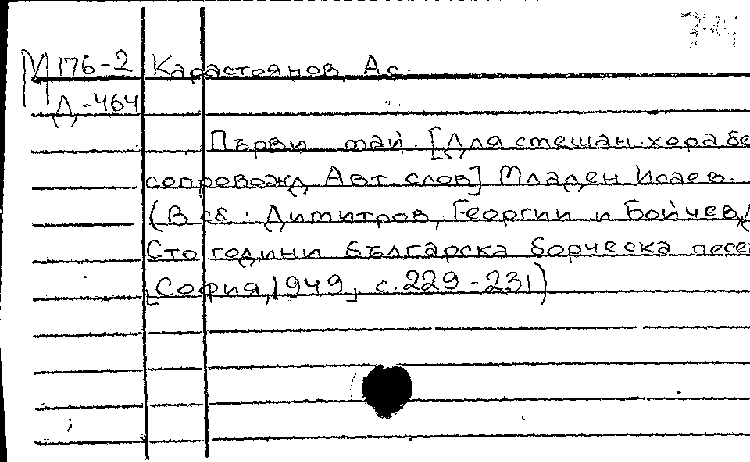 М 176-2 Карастоянов, Ас.
Д-464
Първи май. [Для смешан. хора бе
сопровожд. Авт. слов] Младен Исаев.
(В сб.: Димитров, Георгии и Бойчев,
Сто години българска борческа песе
[София, 1949], с. 229-231)